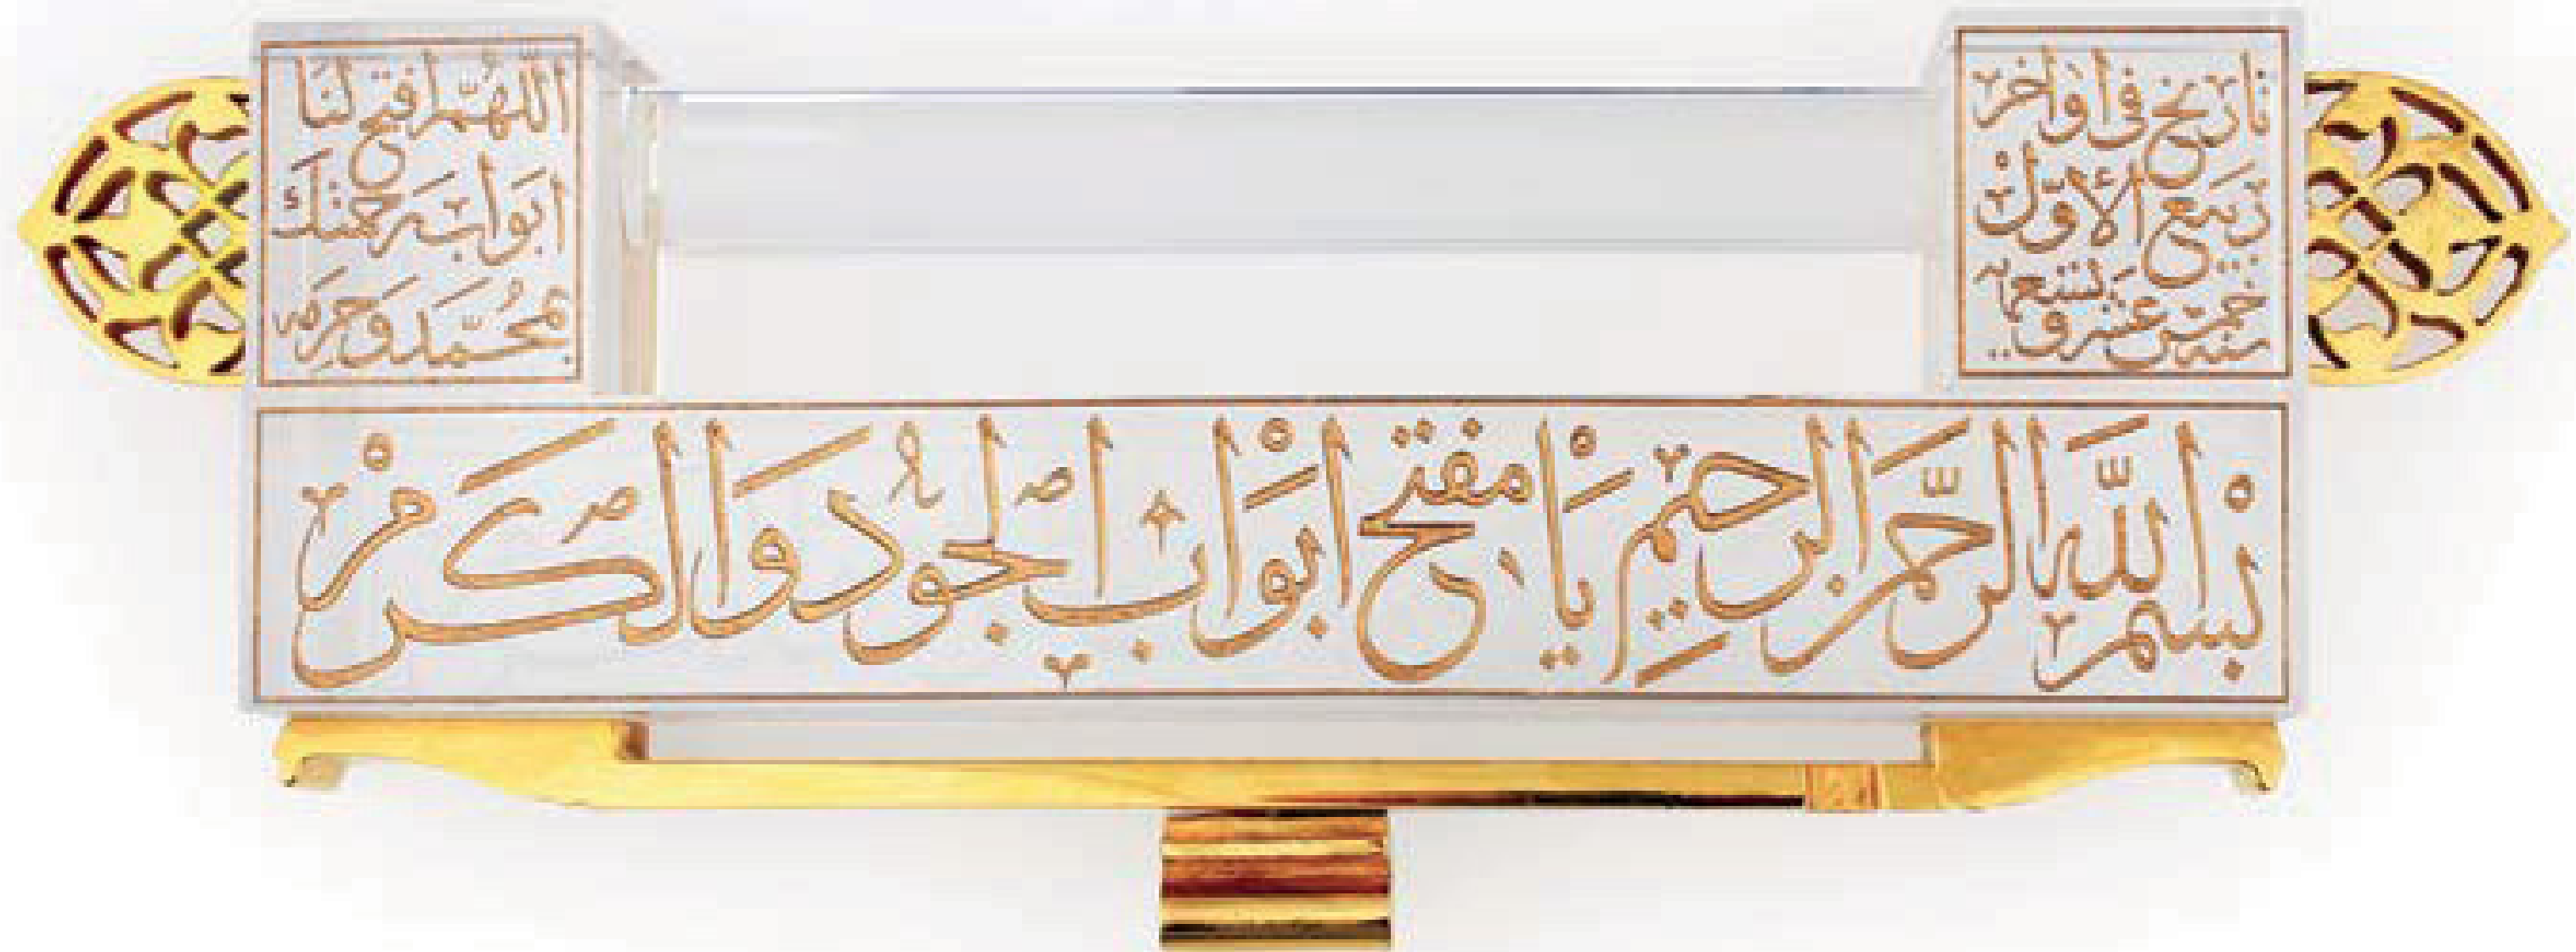 تاريخ فى اواخر
ربيع الاول
سنه خمس عشر و تسعمايه
اللهم افتح لنا
ابواب رحمتك
بمحمد وحرمه
بسم الله الرحمن الرحيم يا مفتح ابواب الجود والكرم